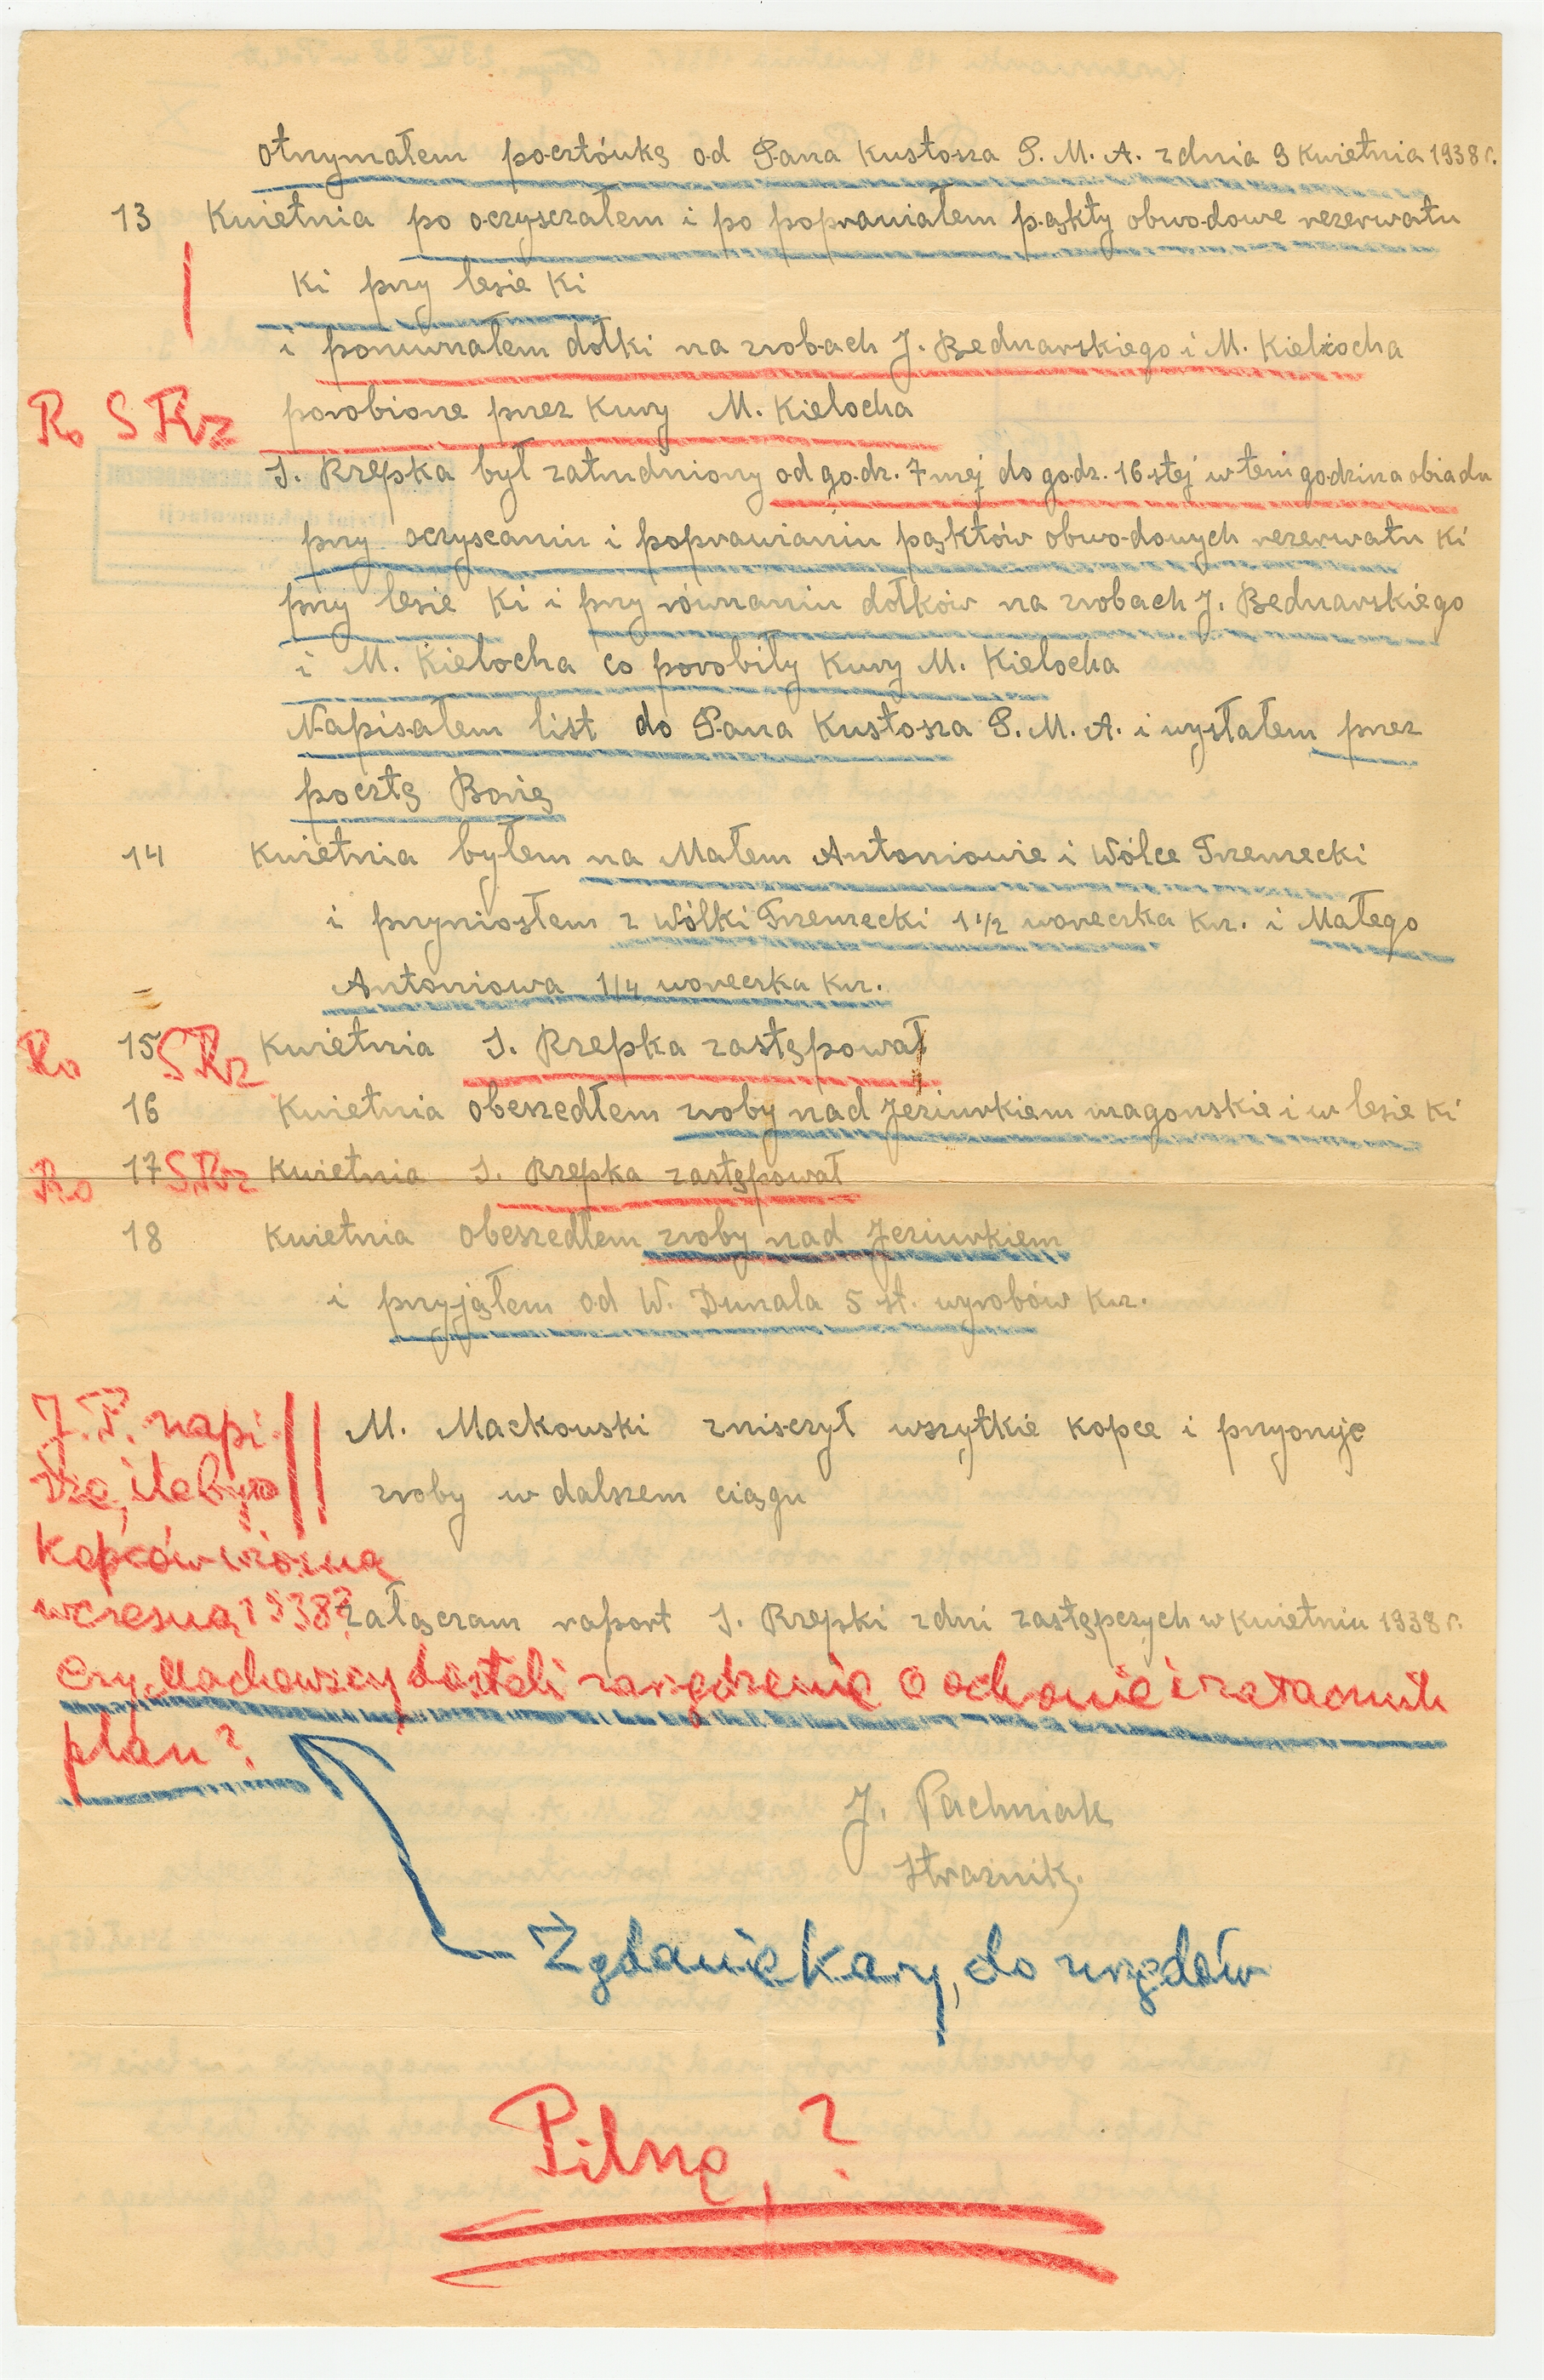 otrzymałem pocztówkę od Pana Kustosza P. M. A. z dnia 9 Kwietnia 1938 r.
13 Kwietnia po oczyszczałem i po poprawiałem pąkty obwodowe rezerwatu
Ki przy lesie Ki
i porównałem dołki na zrobach J. Bednarskiego i M. Kielocha
Ro S Rz porobione przez Kury M. Kielocha
S. Rzepka był zatrudniony od godz. 7mej do godz. 16-stej w tem godzina obiadu
przy oczyscaniu i poprawianiu pąktów obwodowych rezerwatu Ki
przy lesie Ki i przy równaniu dołków na zrobach J. Bednarskiego
i M. Kielocha co porobiły Kury M. Kielocha
Napisałem list do Pana Kustosza P. M. A. i wysłałem przez
pocztę Borię
14 Kwietnia byłem na Małem Antoniowie i Wólce Trzemecki
i przyniosłem z Wólki Trzemecki 1 1/2 woreczka Krz. i Małego
Antoniowa 1/4 woreczka Krz.
Ro 15 S Rz Kwietnia S. Rzepka zastępował
16 Kwietnia obeszedłem zroby nad Jeziurkiem magonskie i w lesie Ki
Ro 17 S. Rz Kwietnia S. Rzepka zastępował
18 Kwietnia obeszedłem zroby nad Jeziurkiem
i przyjąłem od W. Dunala 5 szt. wyrobów Krz.
J. P. napi-
sze, ile było
kopców wiosną
wczesną 1938?
M. Mackowski zniszczył wszytkie kopce i pryoruje
zroby w dalszem ciągu
załączam raport S. Rzepki z dni zastępczych w Kwietniu 1938 r.
Czy Machowscy dostali zarządzenie o ochronie i załącznik
plan?
J. Pachniak
Strażnik.
Żądanie kary, do urzędów
Pilne, ?